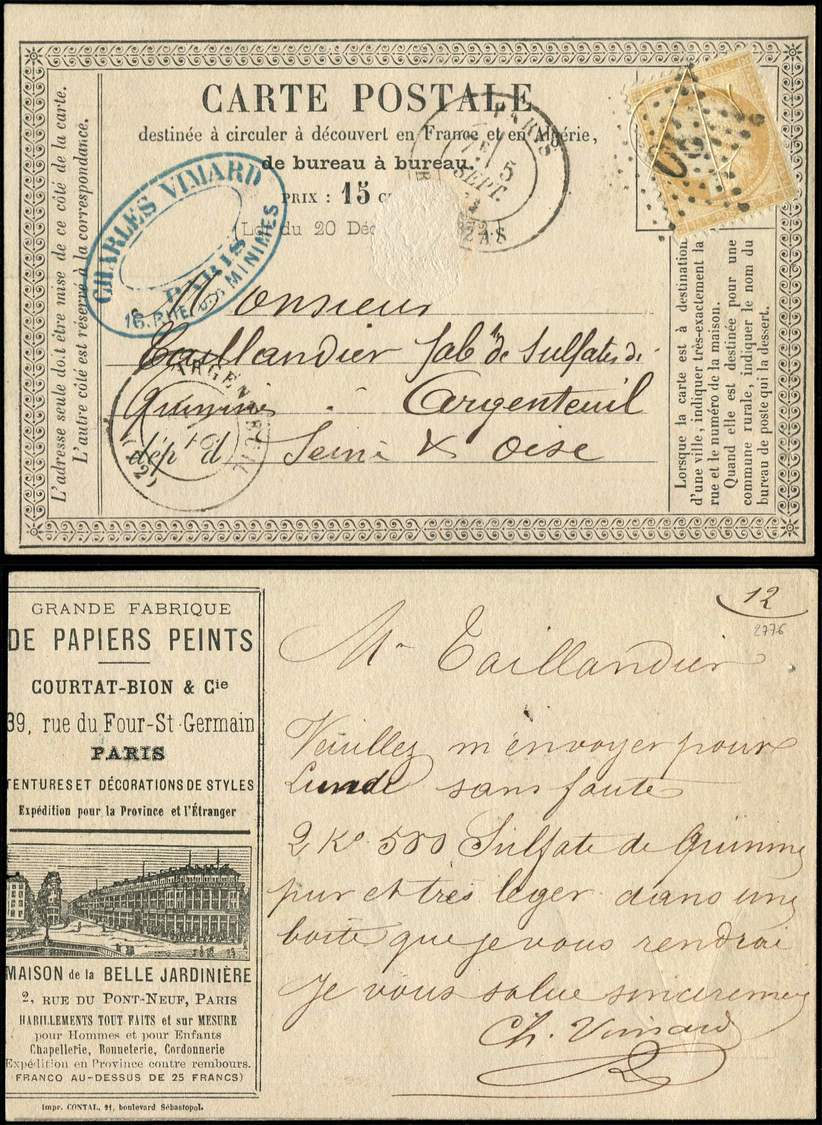 CARTE POSTALE
destinée à circuler à découvert en France et en Algérie,
de bureau à bureau.
PRIX : 15 c
Loi du 20 Déc
CHARLES VIMARD
PARIS
16, RUE DES MINIMES
PARIS
7E 5
SEPT.
Monsieur
Taillandier fabt de Sulfates de
Quinine à Argenteuil
dépt d Seine & Oise
ARGENTEUIL
L'adresse seule doit être mise de ce côté de la carte.
L'autre côté est réservé à la correspondance.
Lorsque la carte est à destination
d'une ville, indiquer très-exactement la
rue et le numéro de la maison.
Quand elle est destinée pour une
commune rurale, indiquer le nom du
bureau de poste qui la dessert.
GRANDE FABRIQUE
DE PAPIERS PEINTS
COURTAT-BION & Cie
39, rue du Four-St-Germain
PARIS
TENTURES ET DÉCORATIONS DE STYLES
Expédition pour la Province et l'Étranger
MAISON de la BELLE JARDINIÈRE
2, RUE DU PONT-NEUF, PARIS
HABILLEMENTS TOUT FAITS et sur MESURE
pour Hommes et pour Enfants
Chapellerie, Bonneterie, Cordonnerie
Expédition en Province contre rembours.
FRANCO AU-DESSUS DE 25 FRANCS)
Impr. CONTAL, 21, boulevard Sébastopol.
12
2776
Mr Taillandier
Veuillez m'envoyer pour
Lundi sans faute
2 Ko 500 Sulfate de Quinine
pur et très leger dans une
boite que je vous rendrai
Je vous salue sincerement
Ch. Vimard